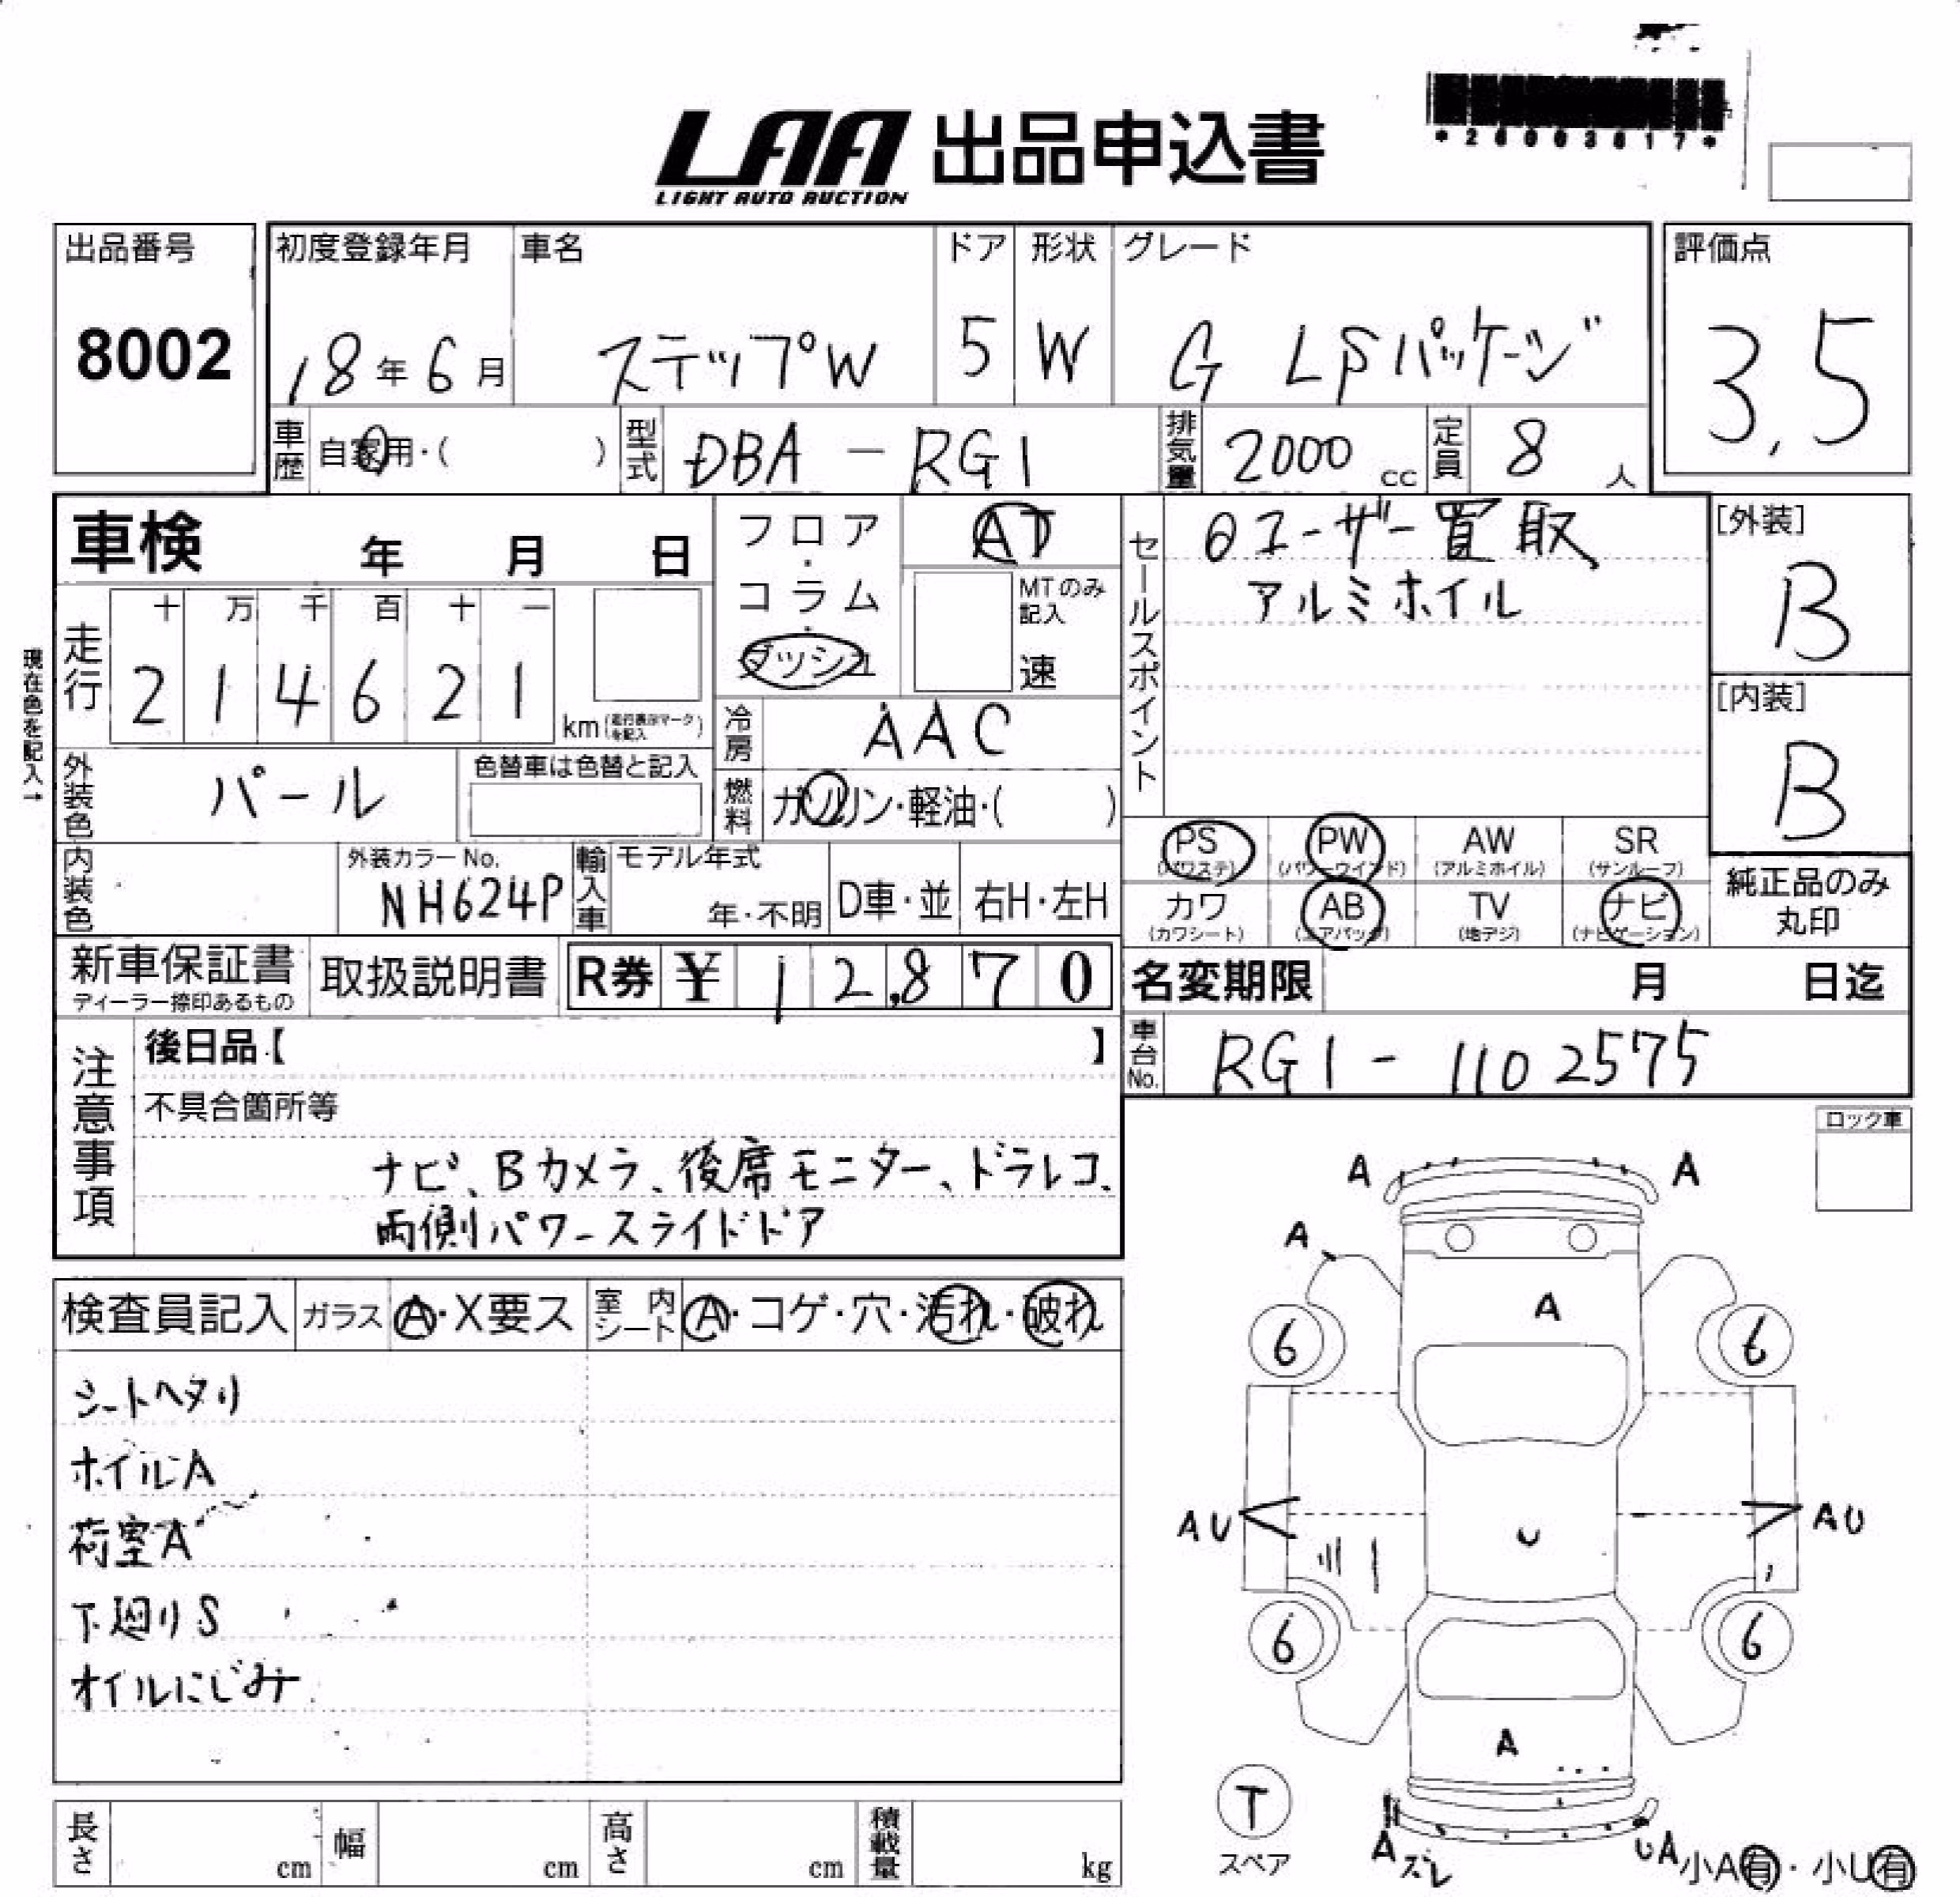 *26003817*
LAA 出品申込書
LIGHT AUTO AUCTION
出品番号
8002
初度登録年月
18年6月
車名
ステップW
ドア
5
形状
W
グレード
G LSパッケージ
評価点
3.5
車歴
自家用・( )
型式
DBA-RG1
排気量
2000cc
定員
8人
車検 年 月 日
現在色を記入→
走行
十 万 千 百 十 一
2 1 4 6 2 1
km (走行表示マークを記入)
フロア・コラム・ダッシュ
AT
MTのみ記入
速
冷房
AAC
外装色
パール
色替車は色替と記入
燃料
ガソリン・軽油・( )
内装色
外装カラーNo.
NH624P
輸入車
モデル年式
年・不明
D車・並
右H・左H
新車保証書
ディーラー捺印あるもの
取扱説明書
R券 ¥ 12,870
セールスポイント
ユーザー買取
アルミホイル
[外装]
B
[内装]
B
PS
(パワステ)
PW
(パワーウインド)
AW
(アルミホイル)
SR
(サンルーフ)
カワ
(カワシート)
AB
(エアバッグ)
TV
(地デジ)
ナビ
(ナビゲーション)
純正品のみ
丸印
名変期限 月 日迄
車台No.
RG1-1102575
注意事項
後日品【 】
不具合箇所等
ナビ、Bカメラ、後席モニター、ドラレコ、
両側パワースライドドア
検査員記入
ガラス A・X要ス
室内シート A・コゲ・穴・汚れ・破れ
シートヘタリ
ホイルA
荷室A
下廻りS
オイルにじみ
長さ cm
幅 cm
高さ cm
積載量 kg
ロック車
A A
A
A
6 6
AU U AU
6 6
A
T
スペア
A ズレ
UA
小A有・小U有